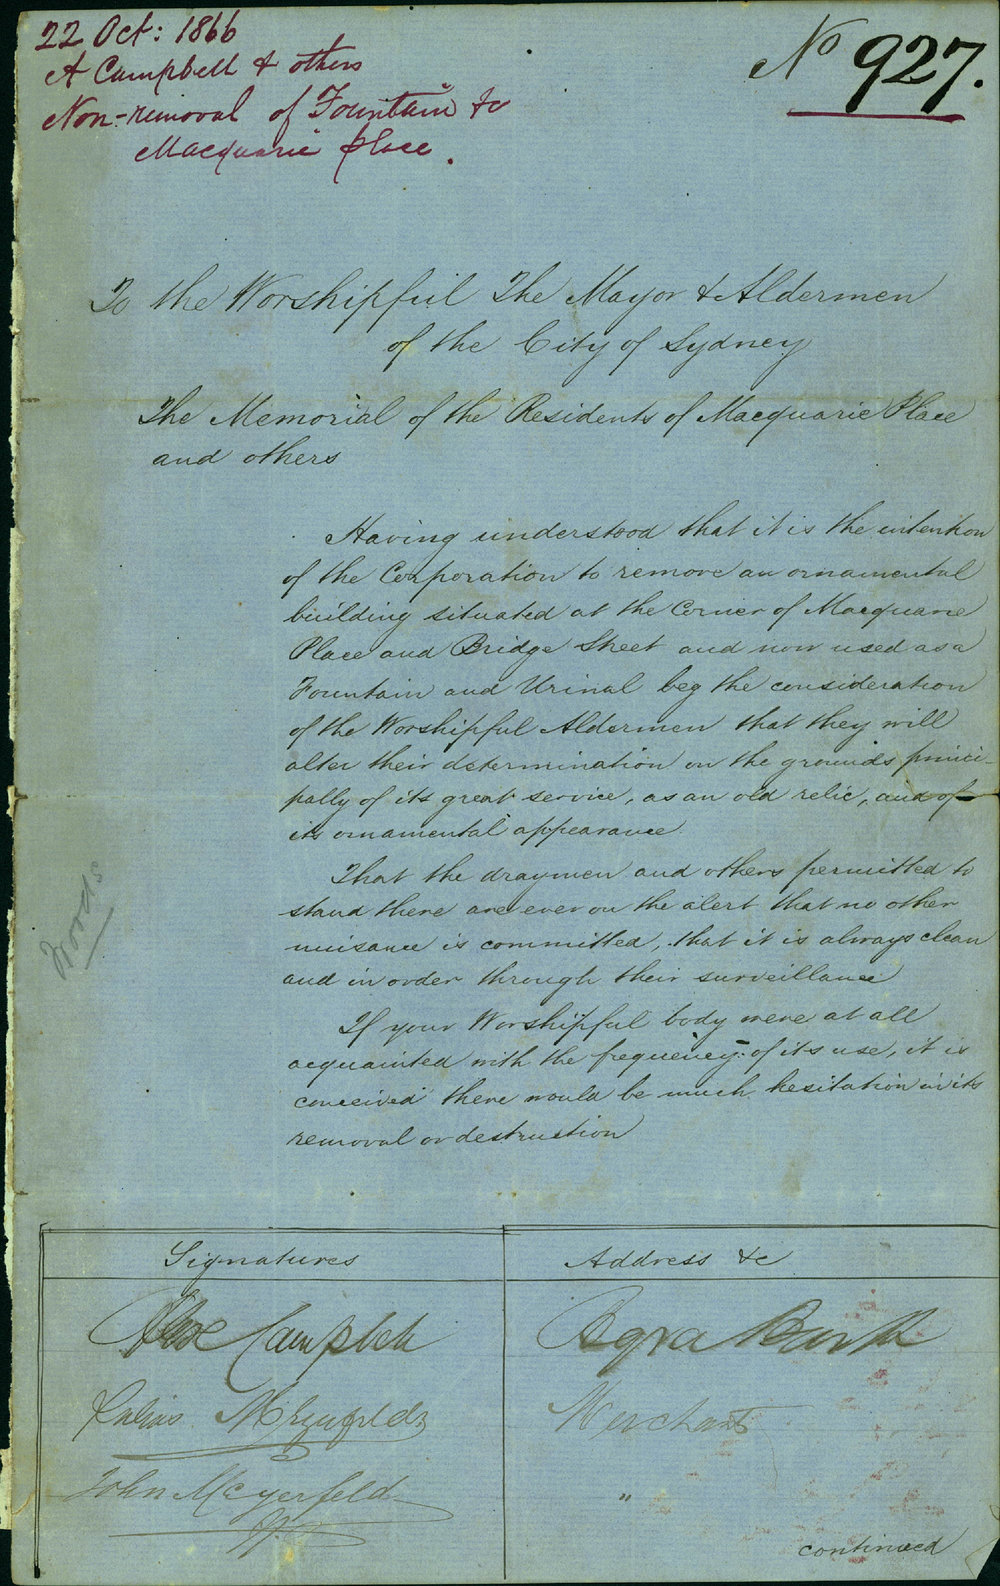 22 Oct: 1866
A Campbell & others
Non-removal of Fountain to
Macquarie place.
No 927.
To the Worshipful The Mayor & Aldermen
of the City of Sydney
The Memorial of the Residents of Macquarie Place
and others
Having understood that it is the intention
of the Corporation to remove an ornamental
building situated at the Corner of Macquarie
Place and Bridge Street and now used as a
Fountain and Urinal beg the consideration
of the Worshipful Aldermen that they will
alter their determination on the grounds princi-
pally of its great service, as an old relic, and of
its ornamental appearance.
That the draymen and others permitted to
stand there are ever on the alert that no other
nuisance is committed, that it is always clean
and in order through their surveillance
If your Worshipful body were at all
acquainted with the frequency of its use, it is
conceived there would be much hesitation in its
removal or destruction
Woods
Signatures
Address &c
Alex Campbell
Julius Meyerfeld
Merchant
John Meyerfeld
"
continued